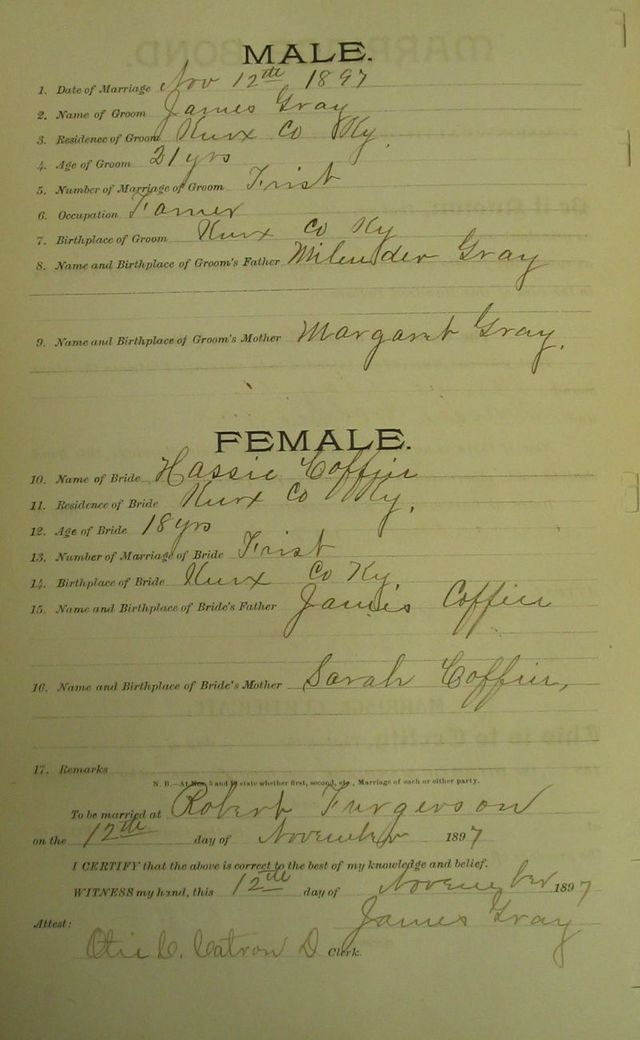 MALE.
1. Date of Marriage Nov 12th 1897
2. Name of Groom James Gray
3. Residence of Groom Knox Co Ky.
4. Age of Groom 21 yrs
5. Number of Marriage of Groom Frist
6. Occupation Farmer
7. Birthplace of Groom Knox Co Ky
8. Name and Birthplace of Groom's Father Milender Gray
9. Name and Birthplace of Groom's Mother Margaret Gray.
FEMALE.
10. Name of Bride Hassie Coffin
11. Residence of Bride Knox Co Ky.
12. Age of Bride 18 yrs
13. Number of Marriage of Bride Frist
14. Birthplace of Bride Knox Co Ky.
15. Name and Birthplace of Bride's Father James Coffin
16. Name and Birthplace of Bride's Mother Sarah Coffin,
17. Remarks
N. B.—At Nos. 5 and 13 state whether first, second, etc., Marriage of each or either party.
To be married at Robert Furgerson
on the 12th day of November 1897
I CERTIFY that the above is correct to the best of my knowledge and belief.
WITNESS my hand, this 12th day of November 1897
James Gray
Attest:
Catron D Clerk.